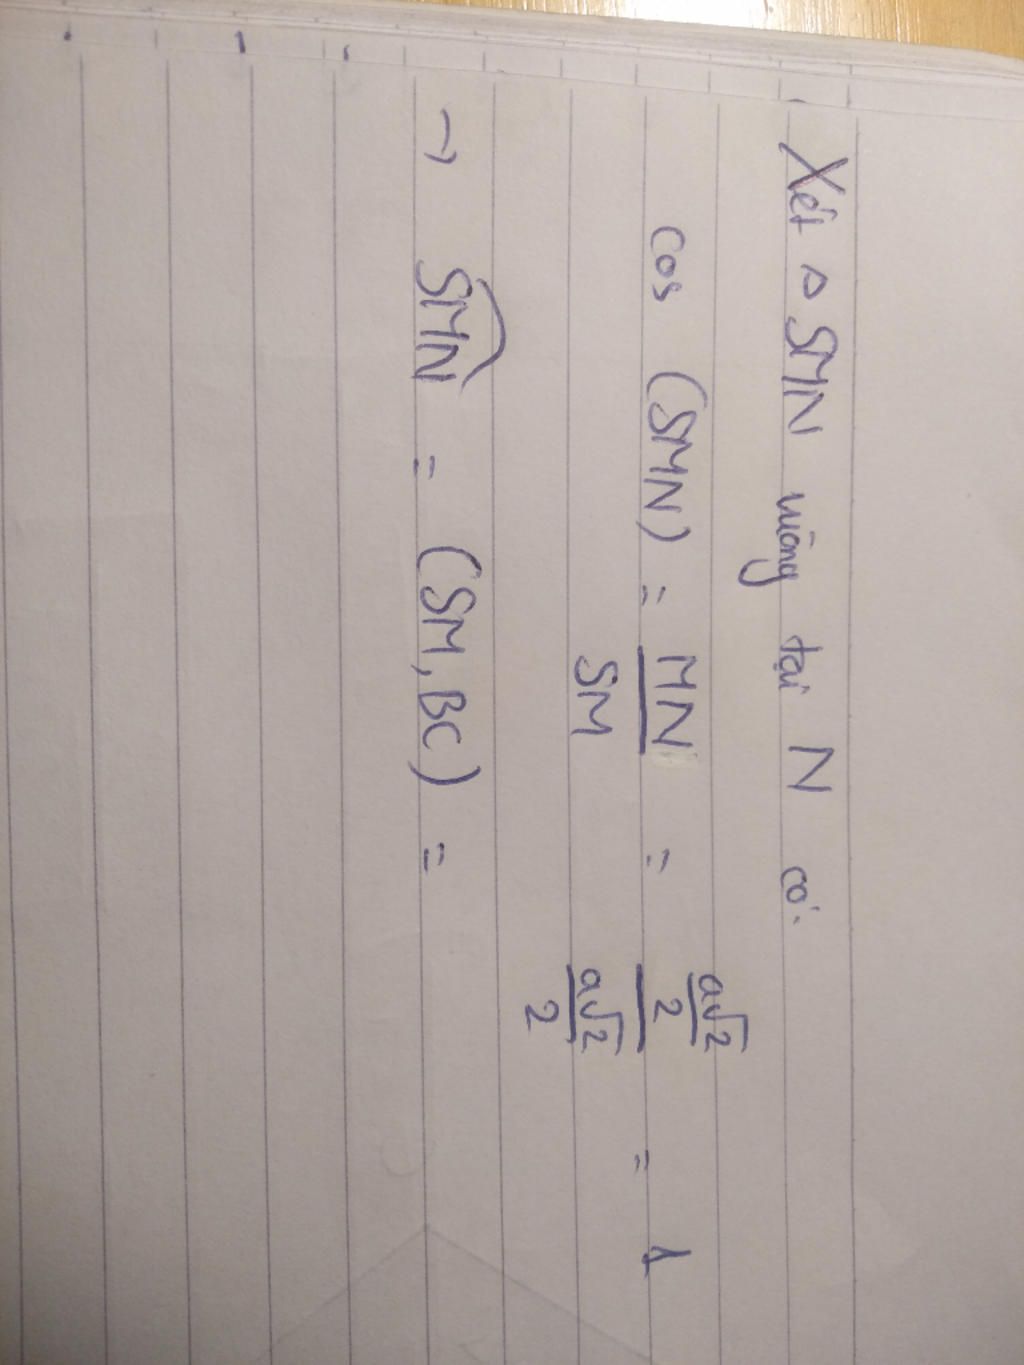 Xét Δ SMN vuông tại N có:
cos (SMN) = \frac{MN}{SM} = \frac{\frac{a\sqrt{2}}{2}}{\frac{a\sqrt{2}}{2}} = 1
→ \widehat{SMN} = (SM, BC) =